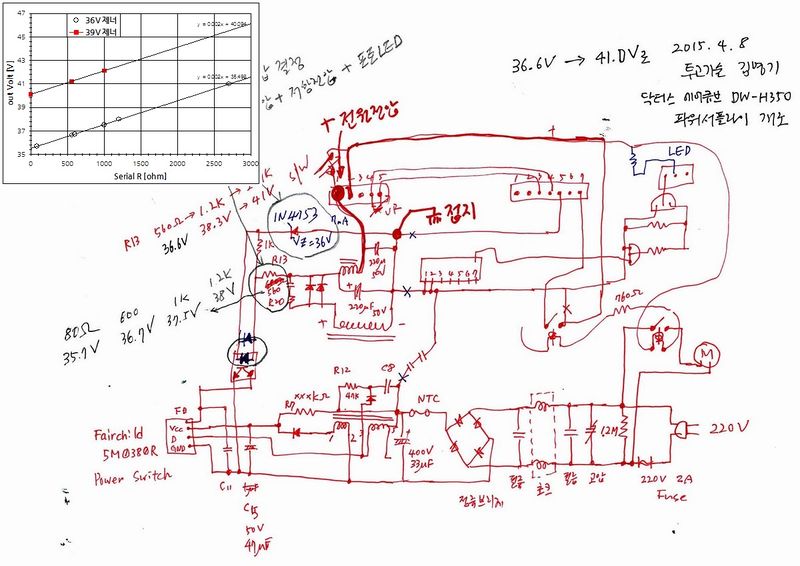 36V제너
39V제너
y = 0.002x + 40.094
y = 0.002x + 35.498
47
45
43
41
39
37
35
out Volt [V]
0
500
1000
1500
2000
2500
3000
Serial R [ohm]
결정
+ 저항전압 + 포토LED
36.6V → 41.0V로
2015. 4. 8
투고가술 김명기
닥터스 에어큐브 DW-H350
파워서플라이 개조
+ 전원전압
S/W
LED
1 2 3 4 5
1 2 3 4 5 6 7
VR
접지
R13 560Ω → 1.2K →
36.6V 38.3V → 41V
1N4753
VZ=36V
1K
R13
560
R20
220μ
50V
220μF
50V
+
-
1 2 3 4 5 6 7
760Ω
M
80Ω 600 1K 1.2K
35.7V 36.7V 37.5V 38V
R12
47K
C8
R7
xxxKΩ
1 2 3
NTC
400V
33μF
1.2M
220V
F0
Vcc
D
GND
Fairchild
5M0380R
Power Switch
C11
C15
50V
47μF
정류브리지
필름
초크
필름
고압
220V 2A
Fuse